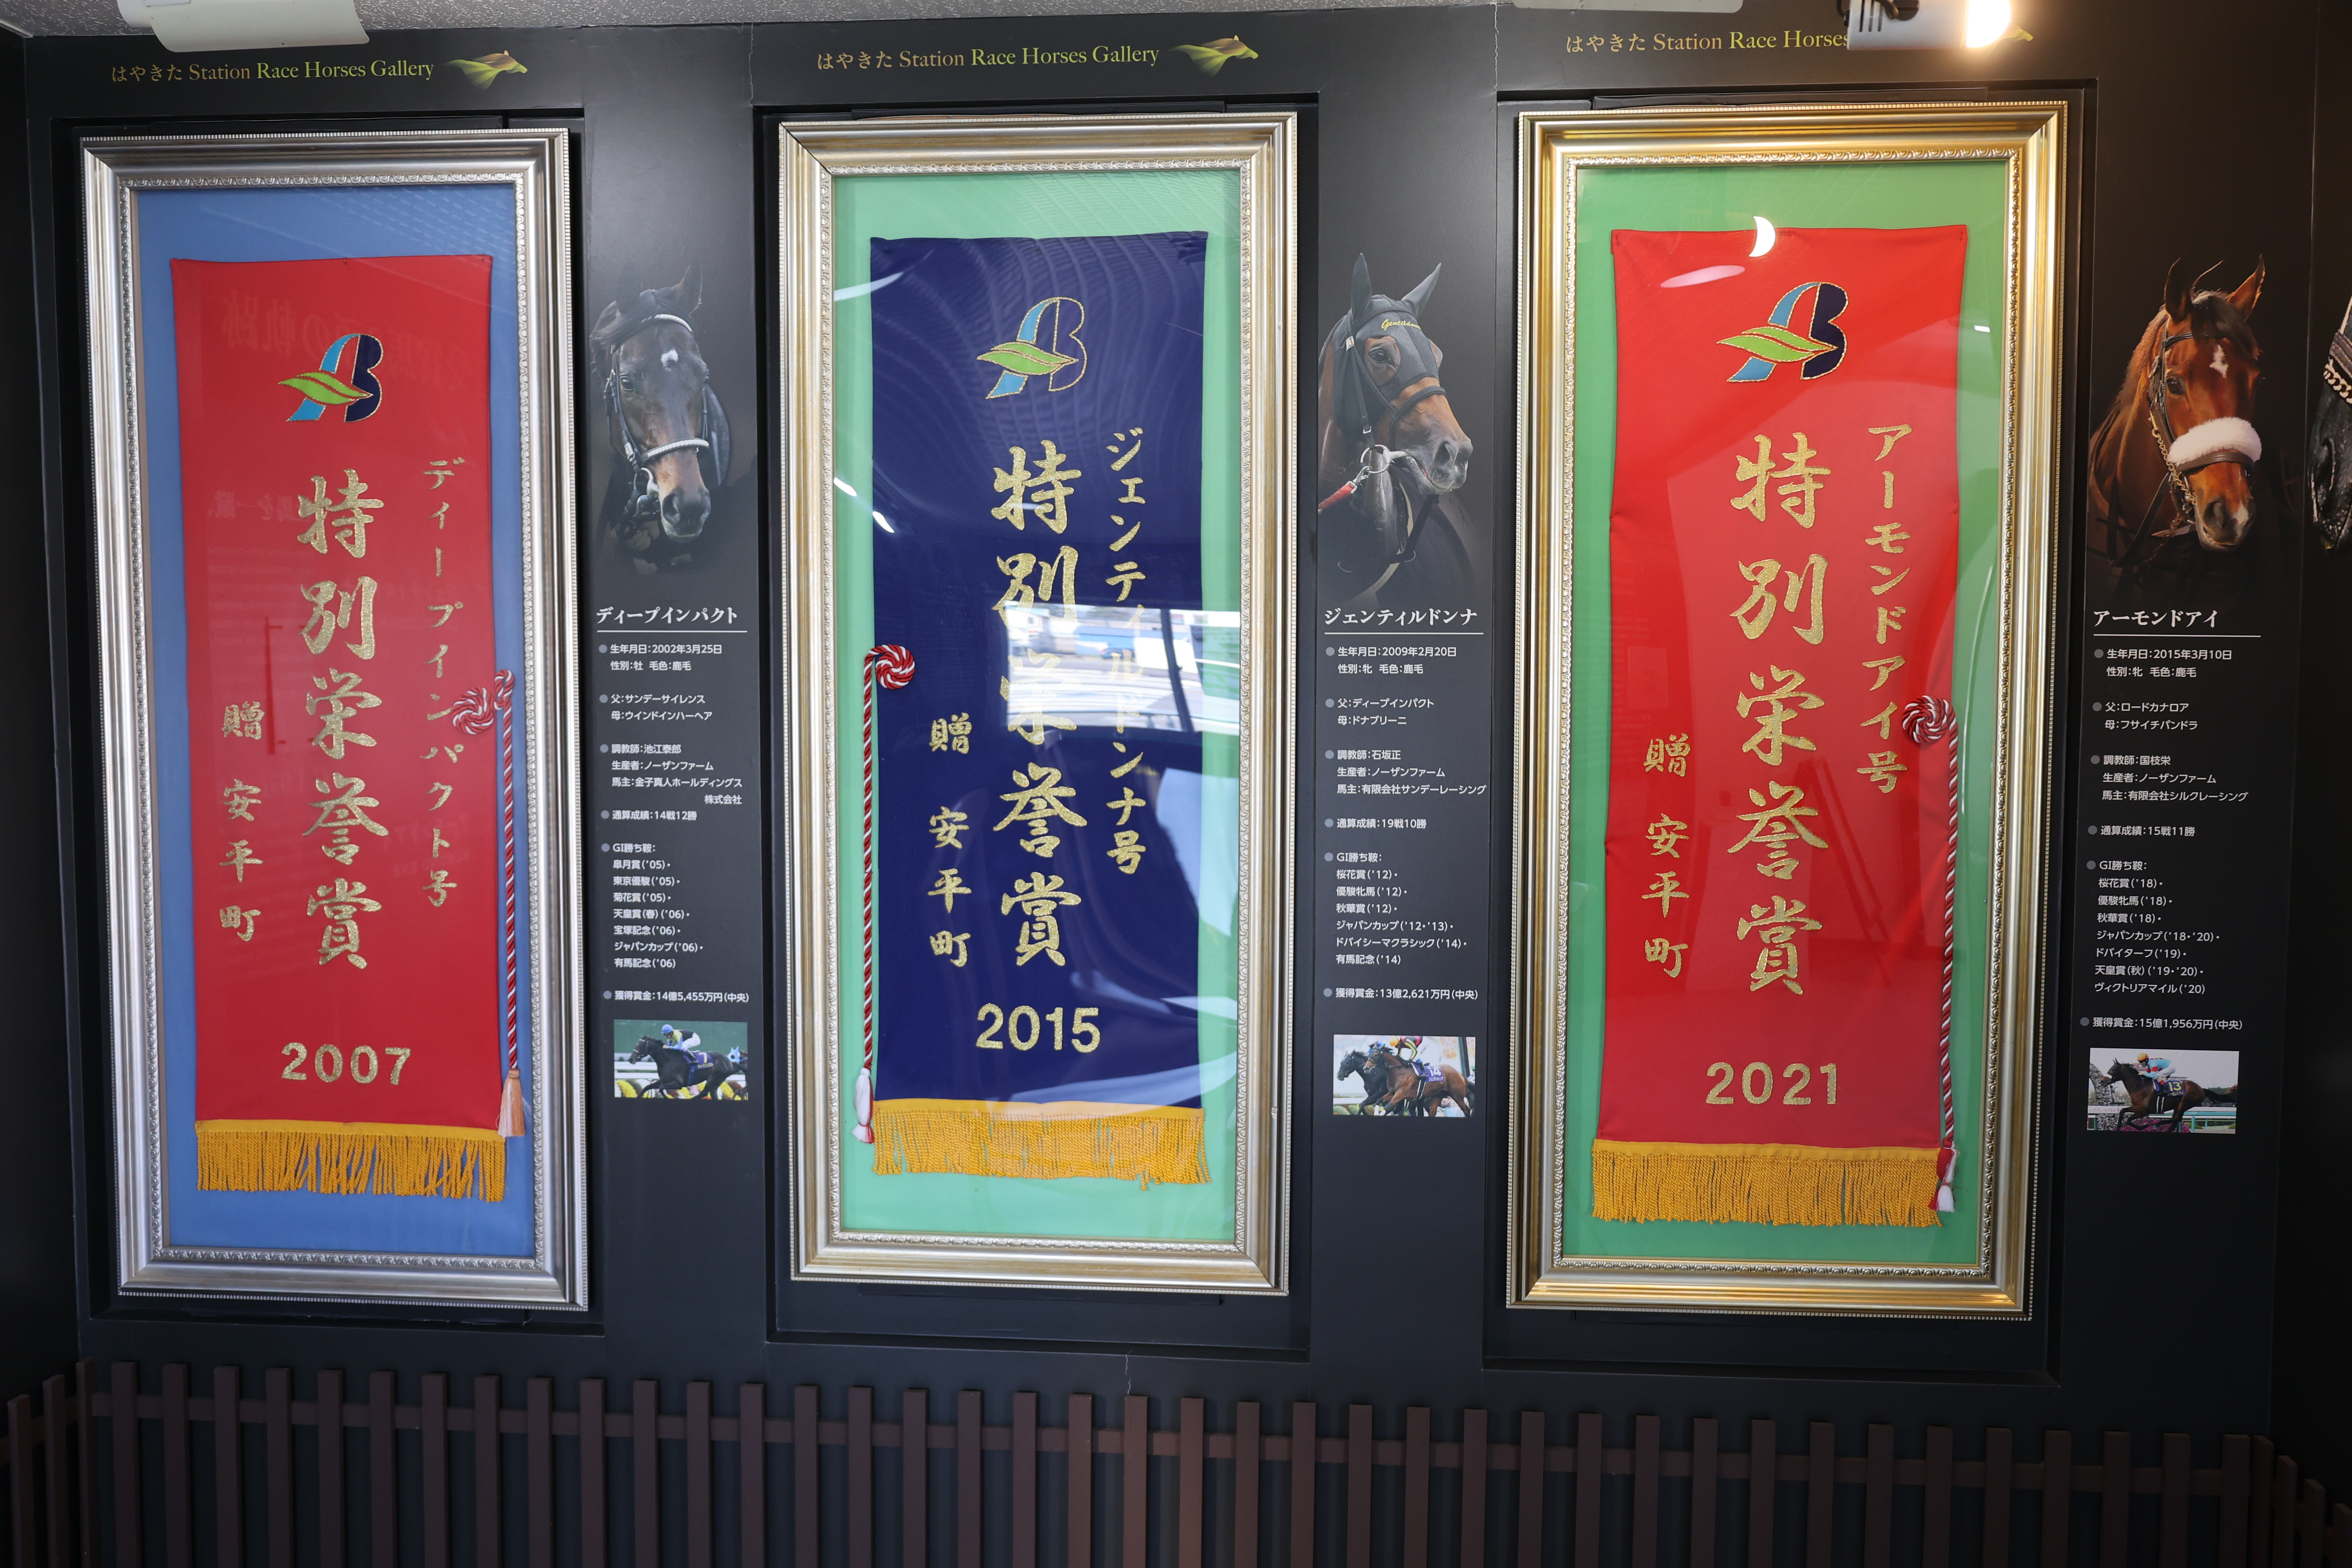 はやきた Station Race Horses Gallery
ディープインパクト号
特別栄誉賞
贈 安平町
2007
ディープインパクト
生年月日：2002年3月25日
性別：牡 毛色：鹿毛
父：サンデーサイレンス
母：ウインドインハーヘア
調教師：池江泰郎
生産者：ノーザンファーム
馬主：金子真人ホールディングス
株式会社
通算成績：14戦12勝
GI勝ち鞍：
皐月賞（'05）・
東京優駿（'05）・
菊花賞（'05）・
天皇賞（春）（'06）・
宝塚記念（'06）・
ジャパンカップ（'06）・
有馬記念（'06）
獲得賞金：14億5,455万円（中央）
はやきた Station Race Horses Gallery
ジェンティルドンナ号
特別栄誉賞
贈 安平町
2015
ジェンティルドンナ
生年月日：2009年2月20日
性別：牝 毛色：鹿毛
父：ディープインパクト
母：ドナブリーニ
調教師：石坂正
生産者：ノーザンファーム
馬主：有限会社サンデーレーシング
通算成績：19戦10勝
GI勝ち鞍：
桜花賞（'12）・
優駿牝馬（'12）・
秋華賞（'12）・
ジャパンカップ（'12・'13）・
ドバイシーマクラシック（'14）・
有馬記念（'14）
獲得賞金：13億2,621万円（中央）
14
はやきた Station Race Horses
アーモンドアイ号
特別栄誉賞
贈 安平町
2021
アーモンドアイ
生年月日：2015年3月10日
性別：牝 毛色：鹿毛
父：ロードカナロア
母：フサイチパンドラ
調教師：国枝栄
生産者：ノーザンファーム
馬主：有限会社シルクレーシング
通算成績：15戦11勝
GI勝ち鞍：
桜花賞（'18）・
優駿牝馬（'18）・
秋華賞（'18）・
ジャパンカップ（'18・'20）・
ドバイターフ（'19）・
天皇賞（秋）（'19・'20）・
ヴィクトリアマイル（'20）
獲得賞金：15億1,956万円（中央）
13